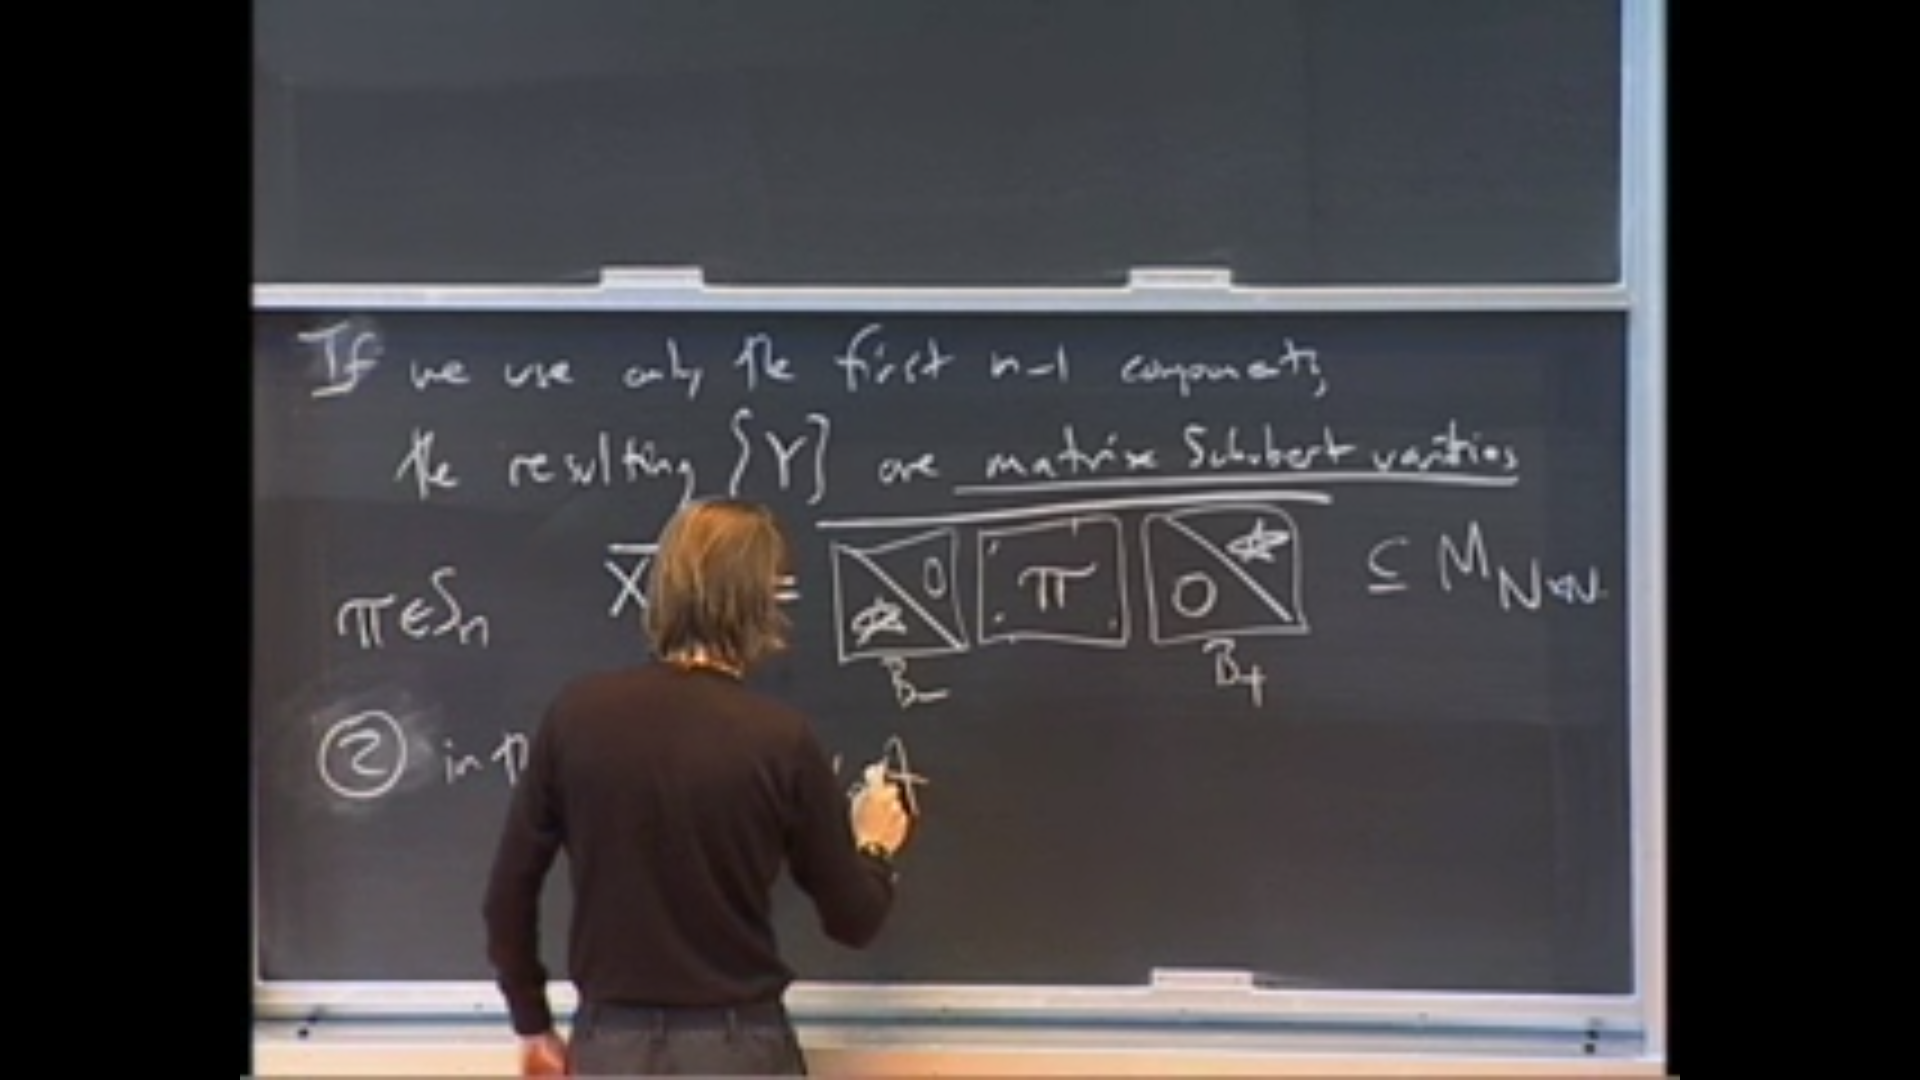 If we use only the first n-1 components,
the resulting {Y} are matrix Schubert varieties
π ∈ Sₙ X = ☆ 0 π 0 ☆ ⊆ M_{N×N}
B₋ B₊
② in